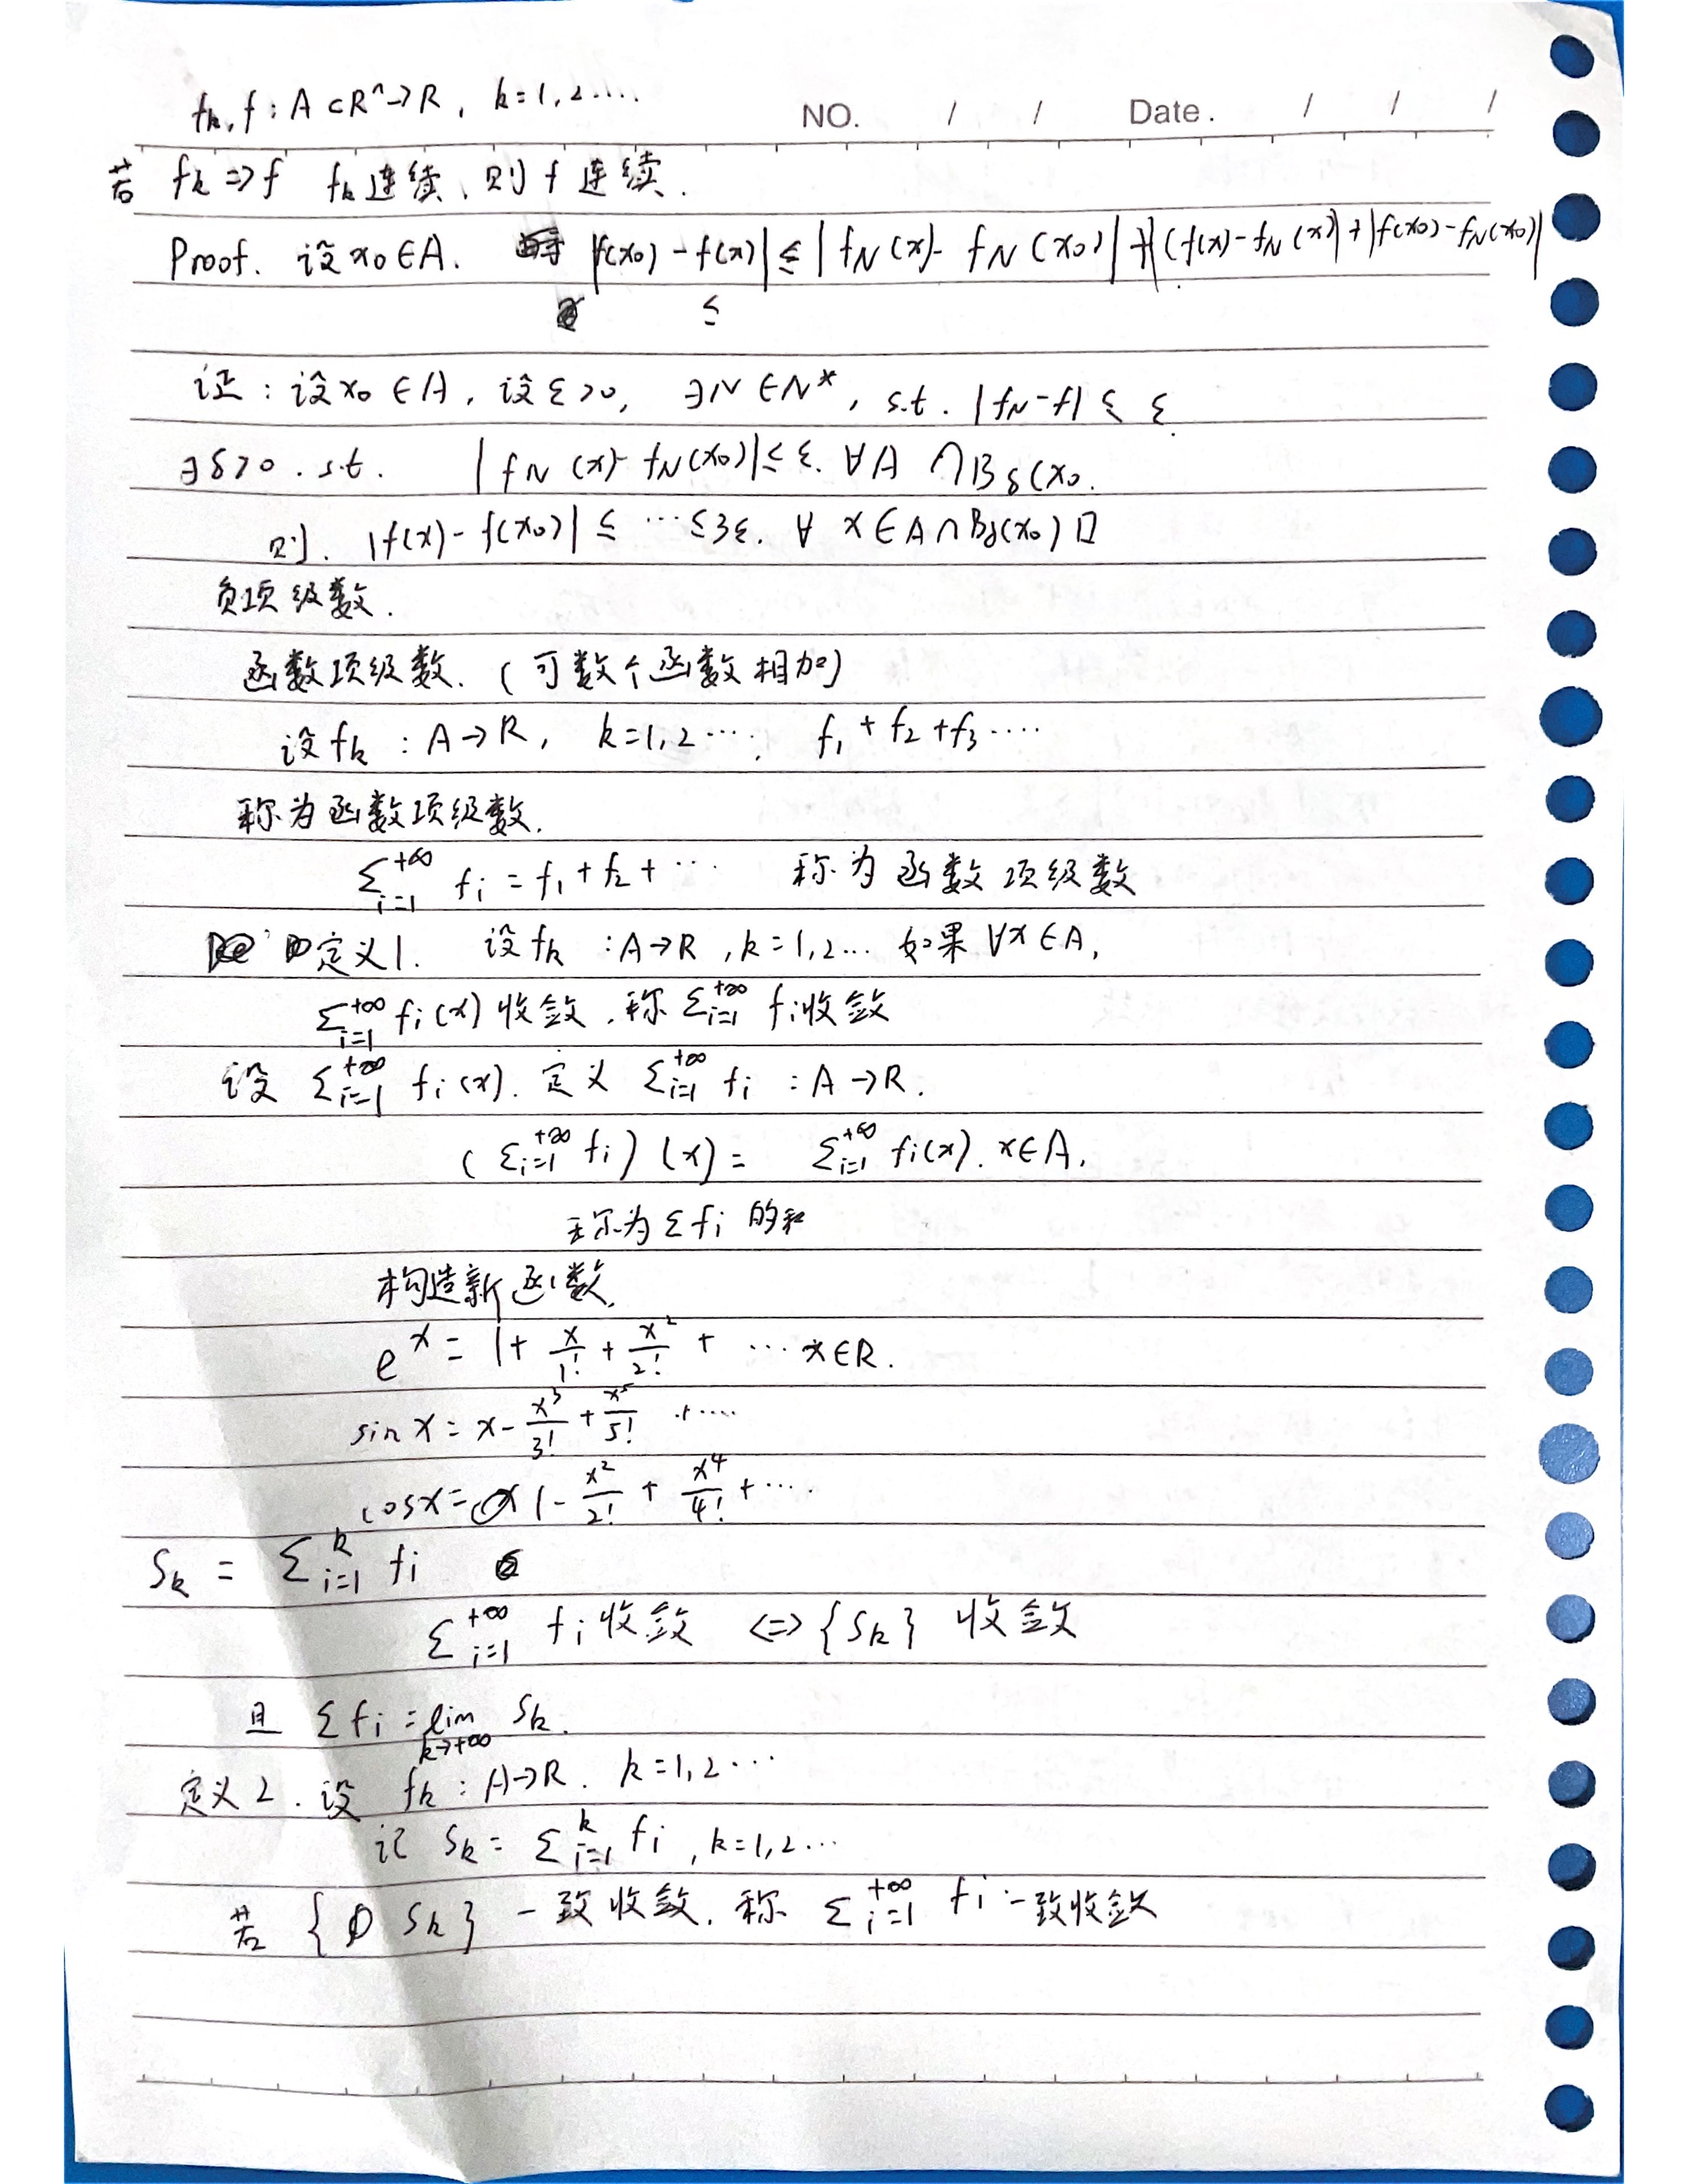 fk, f : A⊂Rⁿ→R, k=1,2....
NO. / / Date. / / /
若 fk ⇒ f fk连续, 则 f 连续.
Proof. 设x₀∈A. |f(x₀) - f(x)| ≤ | fN(x) - fN(x₀)| + |(f(x) - fN(x)| + |f(x₀) - fN(x₀)|
≤
证: 设x₀∈A, 设ε>0, ∃N∈N*, s.t. |fN-f| ≤ ε.
∃δ>0. s.t. |fN(x) - fN(x₀)| ≤ ε. ∀A ∩Bδ(x₀.
则. |f(x) - f(x₀)| ≤ ⋯ ≤3ε. ∀ x∈A∩Bδ(x₀) □
负项级数.
函数项级数. (可数个函数相加)
设fk : A→R, k=1,2⋯. f₁+f₂+f₃⋯⋯
称为函数项级数.
Σ_{i=1}^{+∞} fi = f₁+f₂+⋯ 称为函数项级数
定义1. 设fk : A→R, k=1,2... 如果∀x∈A,
Σ_{i=1}^{+∞} fi(x) 收敛, 称 Σ_{i=1}^{+∞} fi收敛
设 Σ_{i=1}^{+∞} fi(x). 定义 Σ_{i=1}^{+∞} fi : A→R.
(Σ_{i=1}^{+∞} fi) (x) = Σ_{i=1}^{+∞} fi(x). x∈A.
称为Σfi 的和
构造新函数.
e^x = 1+ x/1! + x²/2! + ⋯ x∈R.
sin x = x- x³/3! + x⁵/5! +⋯⋯
cosx= 1- x²/2! + x⁴/4! +⋯.
Sk = Σ_{i=1}^{k} fi
Σ_{i=1}^{+∞} fi收敛 <=> {Sk} 收敛
且 Σfi = lim_{k→+∞} Sk.
定义2. 设 fk : A→R. k=1,2⋯
记 Sk= Σ_{i=1}^{k} fi, k=1,2⋯
若 {Sk} 一致收敛, 称 Σ_{i=1}^{+∞} fi 一致收敛